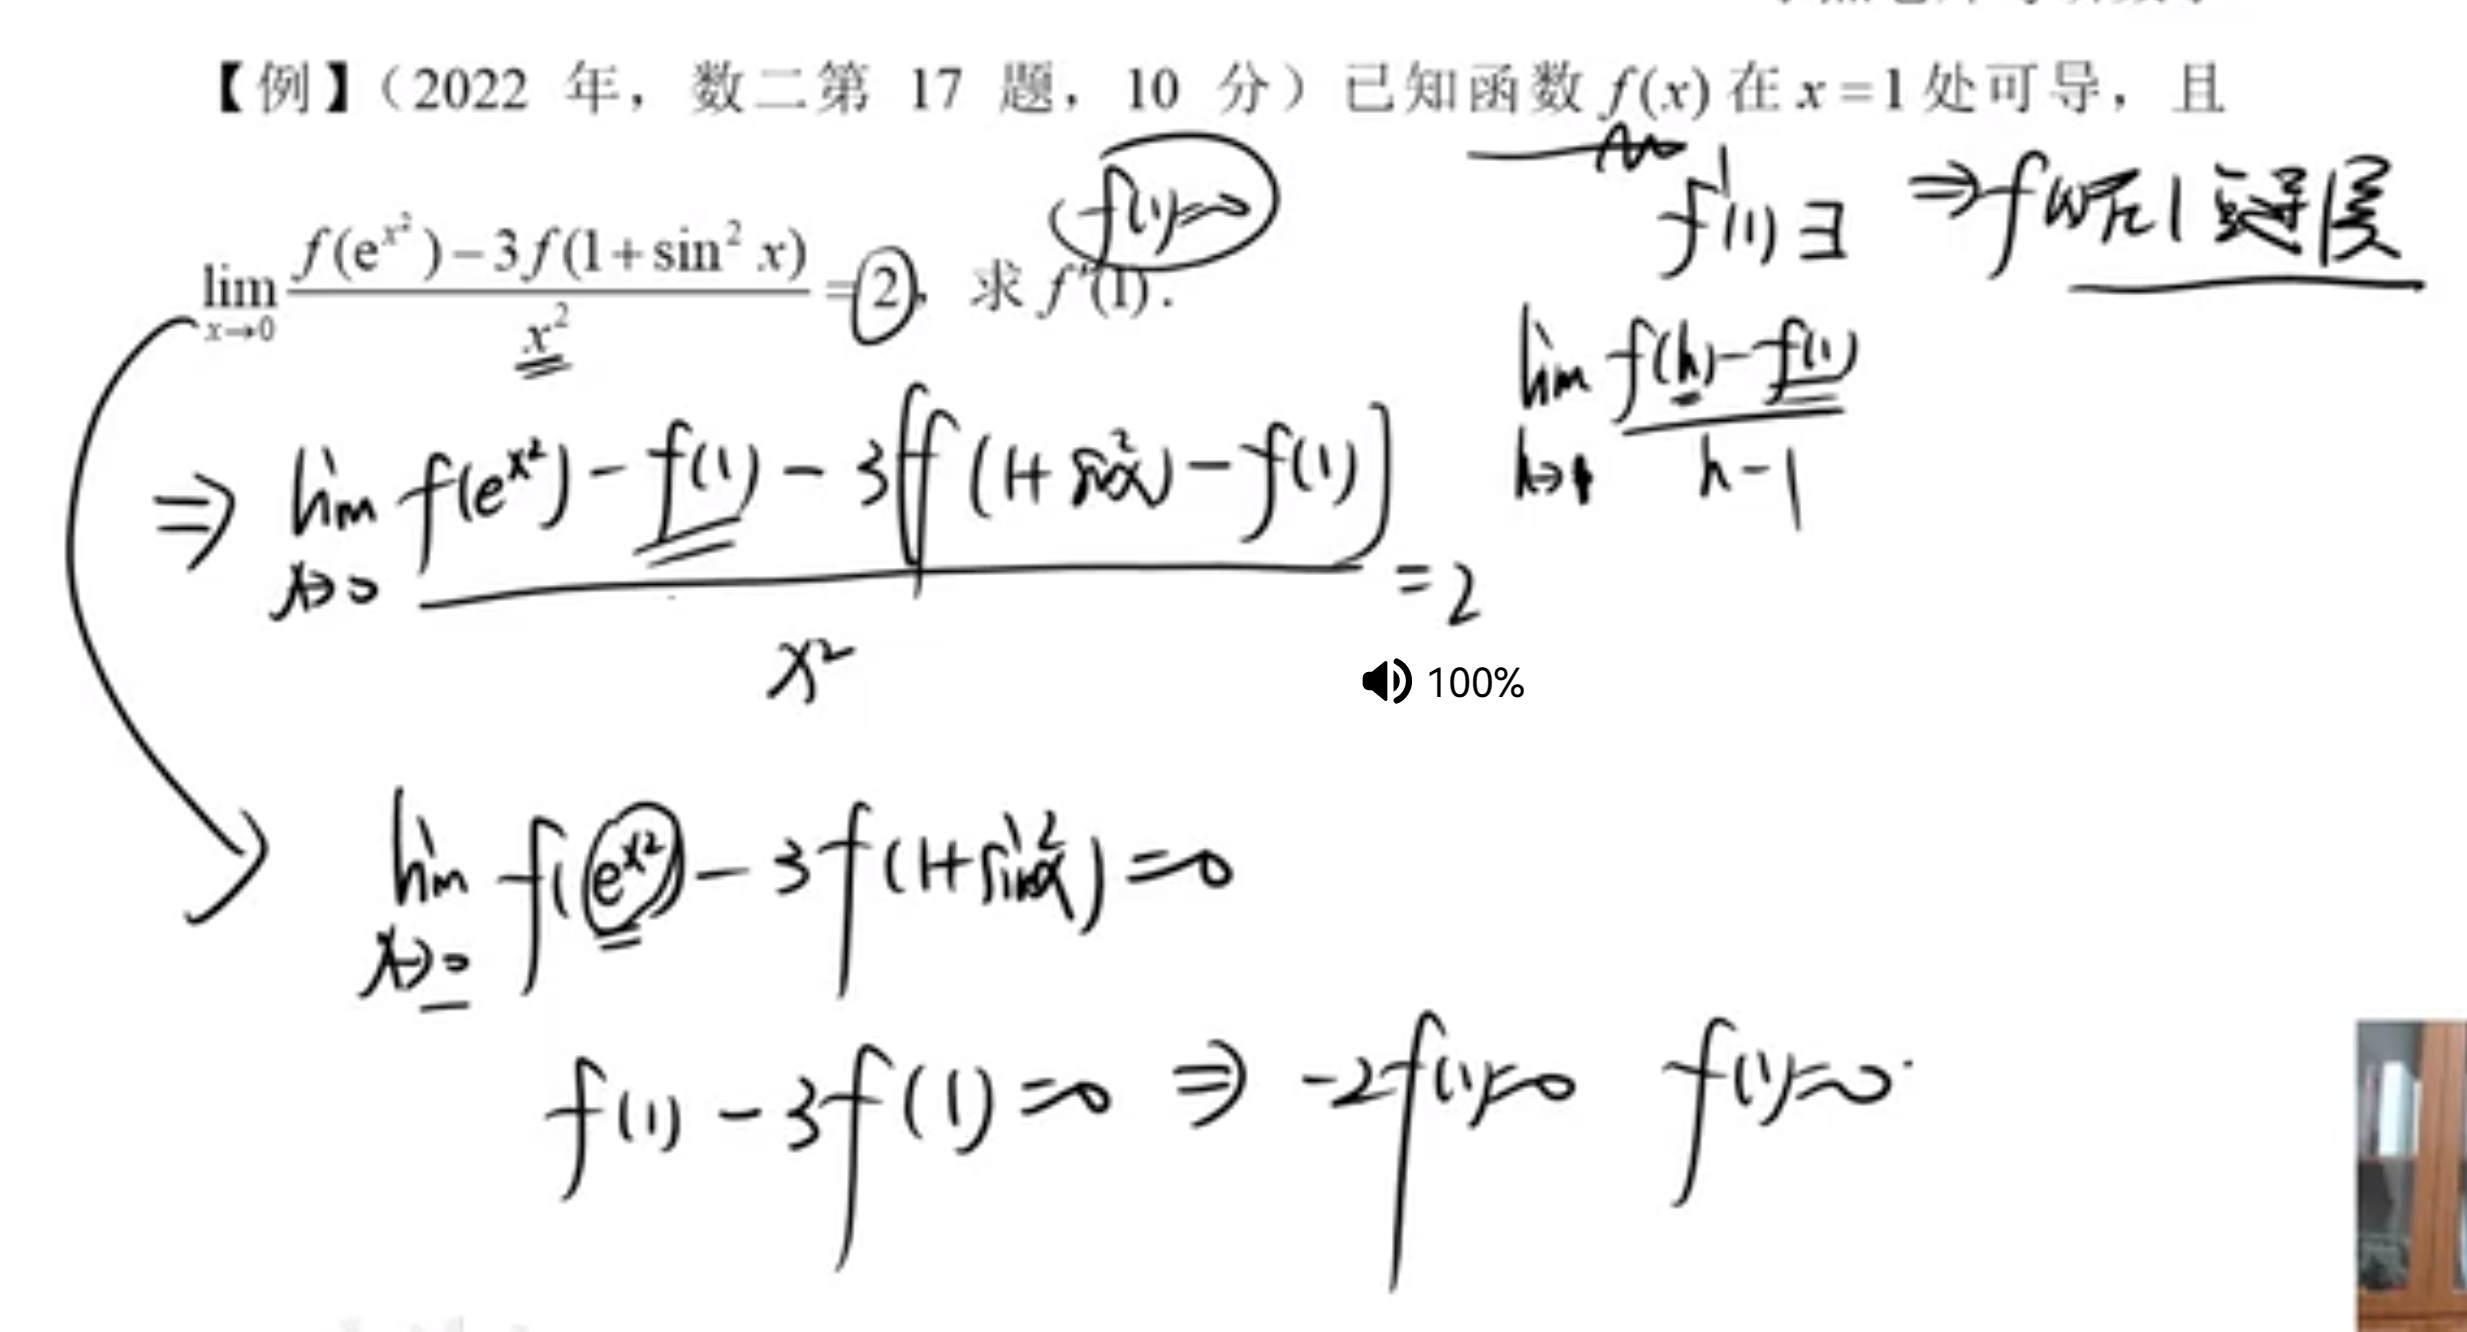 【例】（2022 年，数二第 17 题，10 分）已知函数 f(x) 在 x=1 处可导，且
lim_{x→0} (f(e^{x^2})-3f(1+sin^2 x))/x^2 = 2, 求 f'(1).
f(1)=0
f'(1)∃ ⇒ f(x)在1
lim_{h→1} (f(h)-f(1))/(h-1)
⇒ lim_{x→0} (f(e^{x^2})-f(1)-3[f(1+sin^2x)-f(1)])/x^2 = 2
100%
lim_{x→0} f(e^{x^2})-3f(1+sin^2x)=0
f(1)-3f(1)=0 ⇒ -2f(1)=0 f(1)=0.